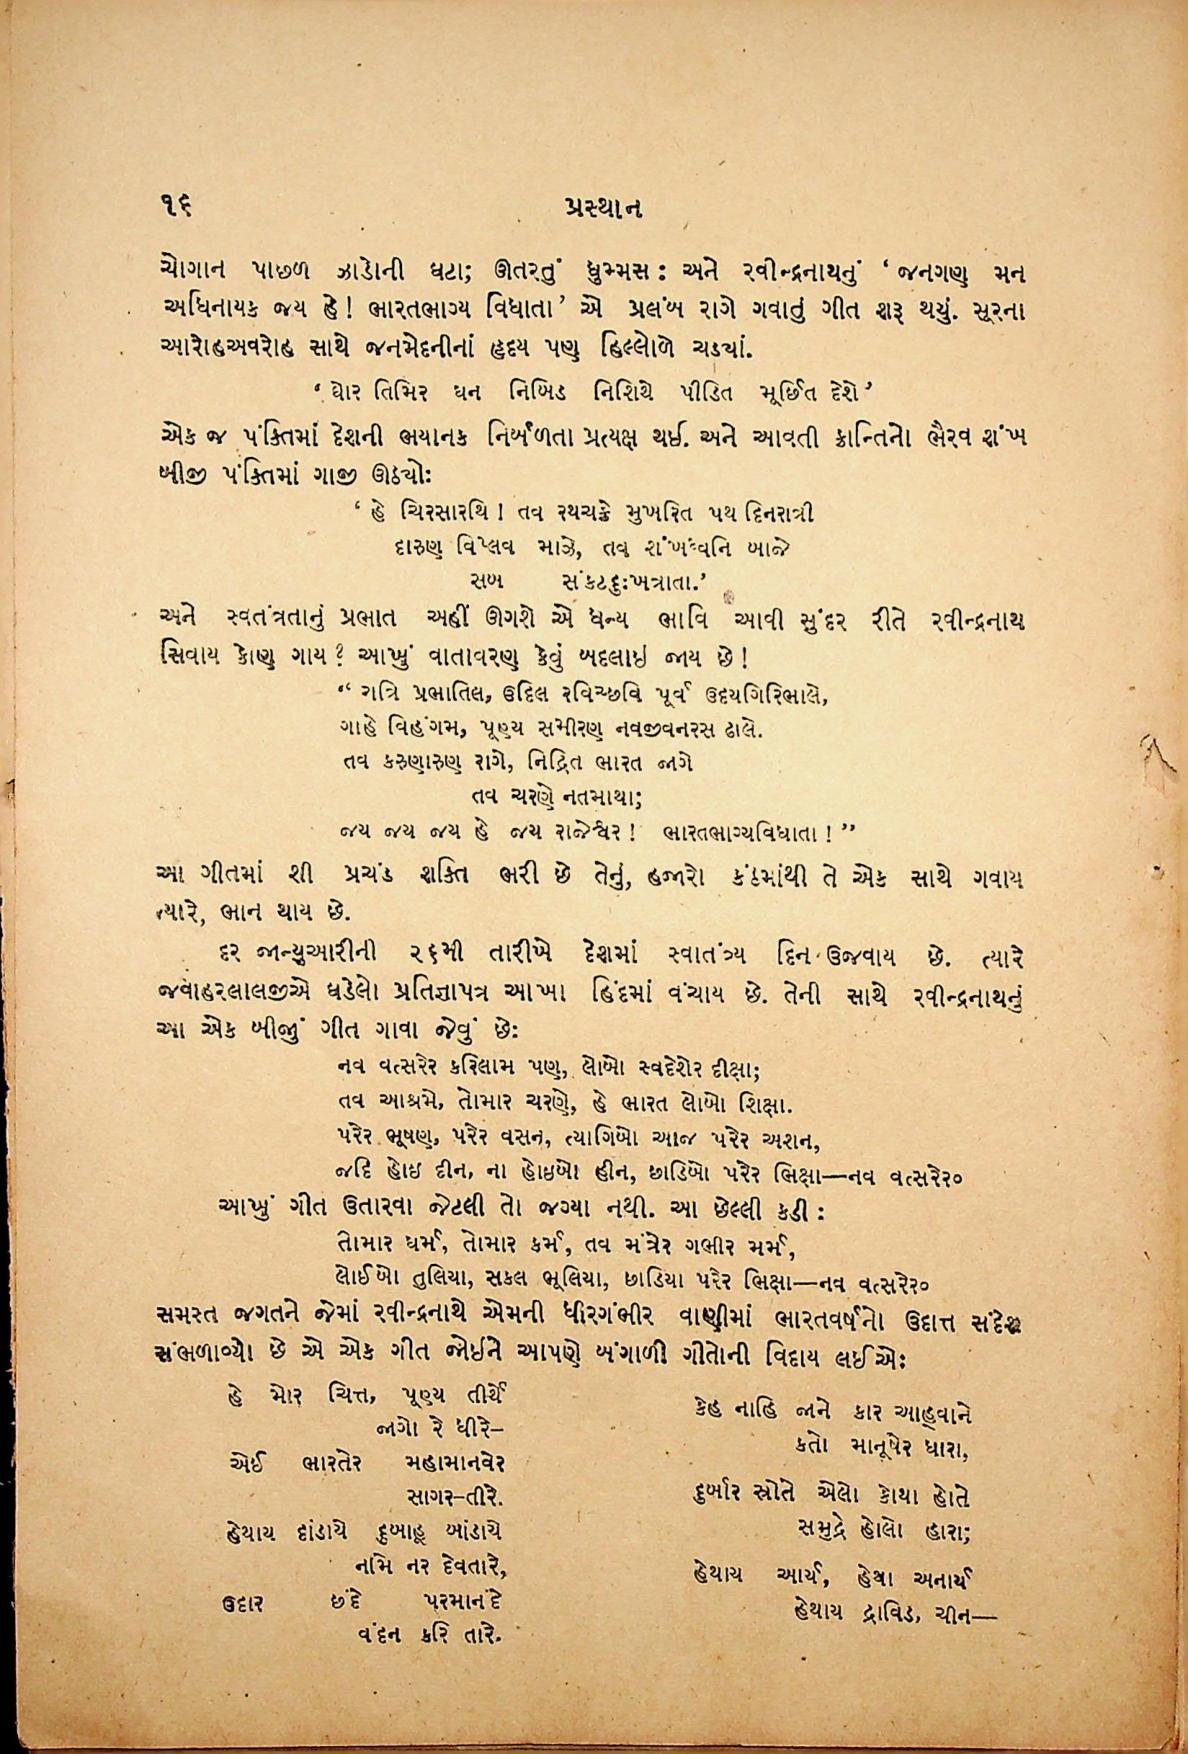 ૧૬
પ્રસ્થાન
ચોગાન પાછળ ઝાડોની ઘટા; ઊતરતું ધુમ્મસ: અને રવીન્દ્રનાથનું ‘જનગણ મન
અધિનાયક જય હે! ભારતભાગ્ય વિધાતા’ એ પ્રલંબ રાગે ગવાતું ગીત શરૂ થયું. સૂરના
આરોહઅવરોહ સાથે જનમેદનીનાં હૃદય પણ હિલ્લોળે ચડ્યાં.
‘ઘોર તિમિર ઘન નિબિડ નિશિથે પીડિત મૂર્છિત દેશે’
એક જ પંક્તિમાં દેશની ભયાનક નિર્બળતા પ્રત્યક્ષ થઈ. અને આવતી ક્રાન્તિનો ભૈરવ શંખ
બીજી પંક્તિમાં ગાજી ઊઠ્યો:
‘હે ચિરસારથિ! તવ રથચક્રે મુખરિત પથ દિનરાત્રી
દારુણ વિપ્લવ માઝે, તવ શંખધ્વનિ બાજે
સબ સંકટદુઃખત્રાતા.’
અને સ્વતંત્રતાનું પ્રભાત અહીં ઊગશે એ ધન્ય ભાવિ આવી સુંદર રીતે રવીન્દ્રનાથ
સિવાય કોણ ગાય? આખું વાતાવરણ કેવું બદલાઇ જાય છે!
“રાત્રિ પ્રભાતિલ, ઉદિલ રવિચ્છવિ પૂર્વ ઉદયગિરિભાલે,
ગાહે વિહંગમ, પૂણ્ય સમીરણ નવજીવનરસ ઢાલે.
તવ કરુણારુણ રાગે, નિદ્રિત ભારત જાગે
તવ ચરણે નતમાથા;
જય જય જય હે જય રાજેશ્વર! ભારતભાગ્યવિધાતા!”
આ ગીતમાં શી પ્રચંડ શક્તિ ભરી છે તેનું, હજારો કંઠમાંથી તે એક સાથે ગવાય
ત્યારે, ભાન થાય છે.
દર જાન્યુઆરીની ૨૬મી તારીખે દેશમાં સ્વાતંત્ર્ય દિન ઉજવાય છે. ત્યારે
જવાહરલાલજીએ ઘડેલો પ્રતિજ્ઞાપત્ર આખા હિંદમાં વંચાય છે. તેની સાથે રવીન્દ્રનાથનું
આ એક બીજું ગીત ગાવા જેવું છે:
નવ વત્સરેર કરિલામ પણ, લોબો સ્વદેશેર દીક્ષા;
તવ આશ્રમે, તોમાર ચરણે, હે ભારત લોબો શિક્ષા.
પરેર ભૂષણ, પરેર વસન, ત્યાગિબો આજ પરેર અશન,
જદિ હોઇ દીન, ના હોઇબો હીન, છાડિબો પરેર ભિક્ષા—નવ વત્સરેર૦
આખું ગીત ઉતારવા જેટલી તો જગ્યા નથી. આ છેલ્લી કડી:
તોમાર ધર્મ, તોમાર કર્મ, તવ મંત્રેર ગભીર મર્મ,
લોઈબો તુલિયા, સકલ ભૂલિયા, છાડિયા પરેર ભિક્ષા—નવ વત્સરેર૦
સમસ્ત જગતને જેમાં રવીન્દ્રનાથે એમની ધીરગંભીર વાણીમાં ભારતવર્ષનો ઉદાત્ત સંદેશ
સંભળાવ્યો છે એ એક ગીત જોઈને આપણે બંગાળી ગીતોની વિદાય લઈએ:
હે મોર ચિત્ત, પૂણ્ય તીર્થે
જાગો રે ધીરે–
એઈ ભારતેર મહામાનવેર
સાગર–તીરે.
હેથાય દાંડાયે દુબાહૂ બાંડાયે
નમિ નર દેવતારે,
ઉદાર છંદે પરમાનંદે
વંદન કરિ તારે.
કેહ નાહિ જાને કાર આહ્વાને
કતો માનૂષેર ધારા,
દુર્બાર સ્રોતે એલો કોથા હોતે
સમુદ્રે હોલો હારા;
હેથાય આર્ય, હેથા અનાર્ય
હેથાય દ્રાવિડ, ચીન—